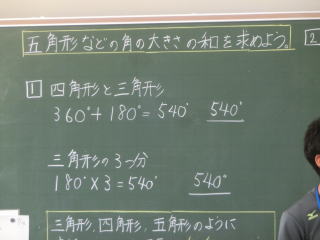 五角形などの角の大きさの和を求めよう。
2
1 四角形と三角形
360°+180°=540° 540°
三角形の3つ分
180°×3=540° 540°
三角形、四角形、五角形のように